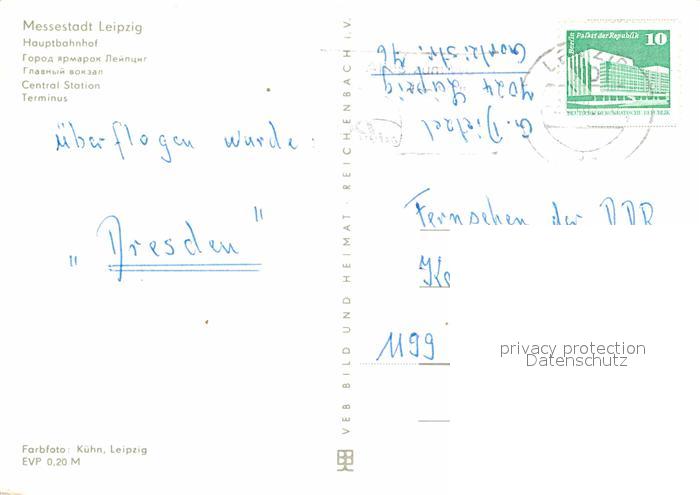 Messestadt Leipzig
Hauptbahnhof
Город ярмарок Лейпциг
Главный вокзал
Central Station
Terminus
überflogen wurde:
„Dresden"
Farbfoto: Kühn, Leipzig
EVP 0,20 M
VEB BILD UND HEIMAT · REICHENBACH i.V.
G. Dietzel
7024 Leipzig
Berlin Palast der Republik 10
DEUTSCHE DEMOKRATISCHE REPUBLIK
Fernsehen der DDR
1199
privacy protection
Datenschutz